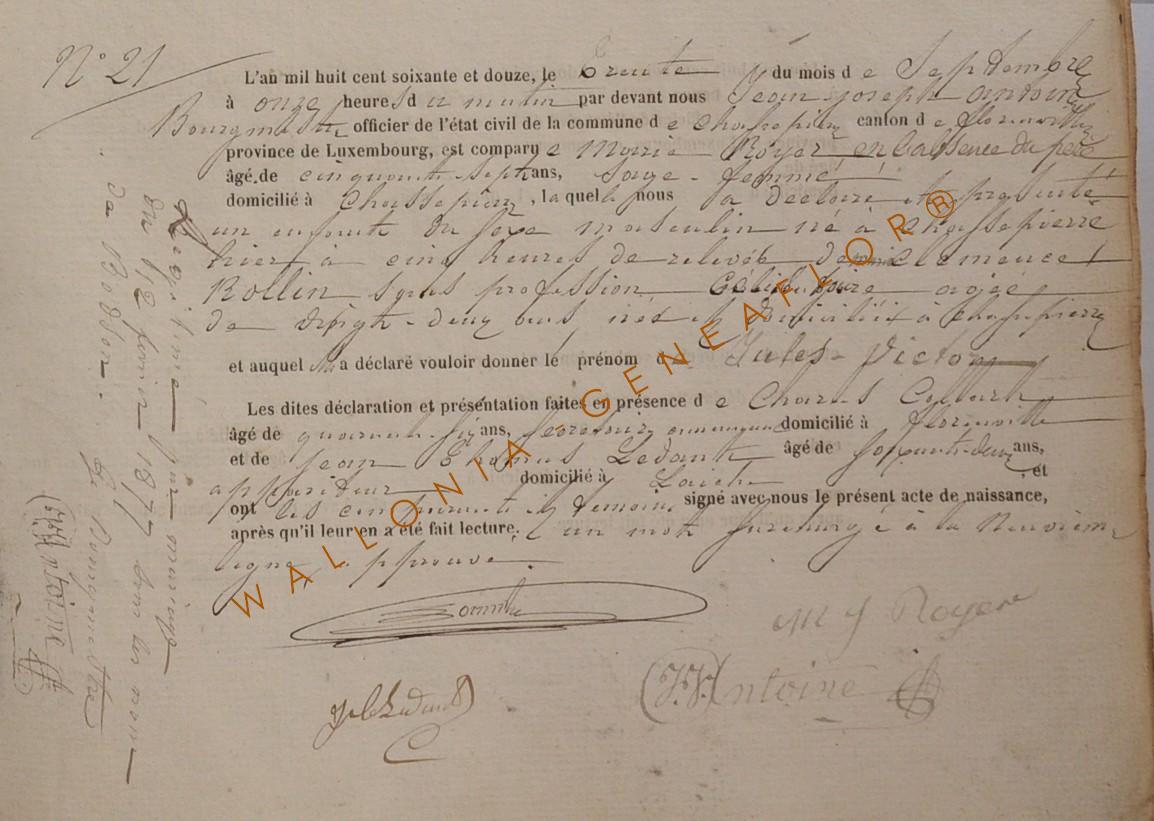 N° 21
L'an mil huit cent soixante et douze, le trente du mois de Septembre
à onze heures du matin par devant nous Jean Joseph Antoine
Bourgmestre officier de l'état civil de la commune de Chassepierre canton de florenville
province de Luxembourg, est comparue Marie Royer en l'absence du père
âgé de cinquante sept ans, sage-femme
domicilié à Chassepierre, laquelle nous a déclaré et présenté
un enfant du sexe masculin né à Chassepierre
hier à cinq heures de relevée de Clémence
Rollin sans profession célibataire agée
de vingt-deux ans née et domiciliée à Chassepierre
et auquel a déclaré vouloir donner le prénom de Jules-Victor
Les dites déclaration et présentation faites en présence de Charles
âgé de quarante six ans, secrétaire communal domicilié à florenville
et de Jean Ledant âgé de soixante-deux ans,
appariteur domicilié à Laiche et
ont les comparante et témoins signé avec nous le présent acte de naissance,
après qu'il leur en a été fait lecture. un mot surchargé à la neuvième
ligne approuvé.
M J Royer
Ledant
(J.J.) Antoine
Légitimé par mariage
du 12 1877 sous le nom
de
Le Bourgmestre
(J.J.) Antoine
WALLONIA - GENEAFLOR®